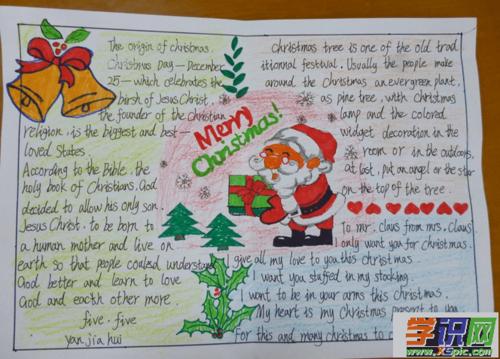 The origin of christmas.
Christmas Day — December
25 — which celebrates the
birsh of Jesus Christ,
the founder of the Christian
religion, is the biggest and best —
loved States.
According to the Bible, the
holy book of Christians, God
decided to allow his only son.
Jesus Christ, to be born to
a human mother and live on
earth so that people could understand
God better and learn to love
God and eacth other more.
five . five
yan jia hui
Merry
Christmas!
Christmas tree is one of the old trad
itionnal festival. Usually the people make
around the Christmas an evergreen plant,
as pine tree, with Christmas
lamp and the colored
widget decoration in the
room or in the outdoors.
at last, put an angel or the star
on the top of the tree.
To mr. claus from mrs. claus
I only want you for christmas.
I give all my love to you this christmas.
I want you stuffed in my stocking.
I want to be in your arms this christmas.
My heart is my Christmas present to you
For this and many christmas to
学识网
www.xspic.com